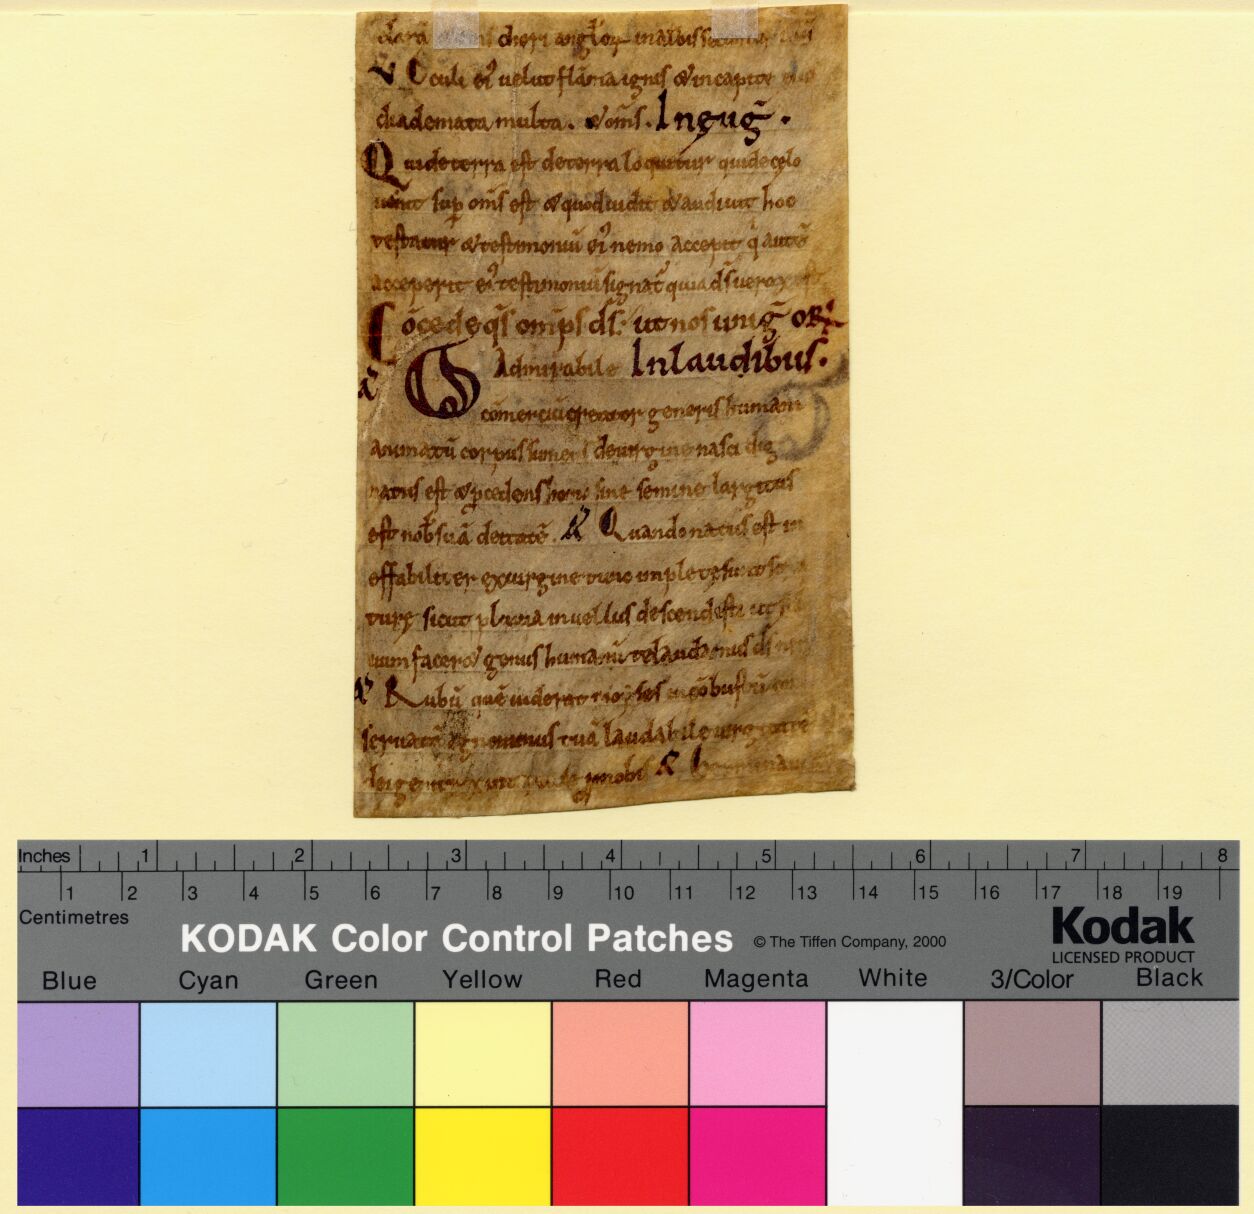 chori angłor in albis
V Oculi ei' uelut flāma ignis & in capite
diademata multa. & om̄s. In euḡ.
Qui de terra est de terra loquitur qui de cęlo
uenit sup om̄s est & quod uidit & audiuit hoc
testatur & testimoniū ei' nemo accepit q̇ autē
acceperit ei' testimoniū signat̄ quia d̄s uerax est
Cōcede q̄s omp̄s d̄s. ut nos uniḡ OR̄
a' O Admirabile In laudibus.
cōmerciū creator generis humani
animatū corpus sumens de uirgine nasci dig
natus est & p̄cedens homo sine semine largitus
est nob̄ suā deitatē. A' Quando natus est in
effabiliter ex uirgine tunc implete sunt
turę sicut pluuia in uellus descendisti ut
uum faceres genus humanū te laudamus d̄s
A' Rubū quē uiderat moyses incōbustū
seruatā agnouimus tuā laudabilē uirginitatē
dei genitrix p nobis A'
Inches 1 2 3 4 5 6 7 8
1 2 3 4 5 6 7 8 9 10 11 12 13 14 15 16 17 18 19
Centimetres
KODAK Color Control Patches © The Tiffen Company, 2000 Kodak
LICENSED PRODUCT
Blue Cyan Green Yellow Red Magenta White 3/Color Black